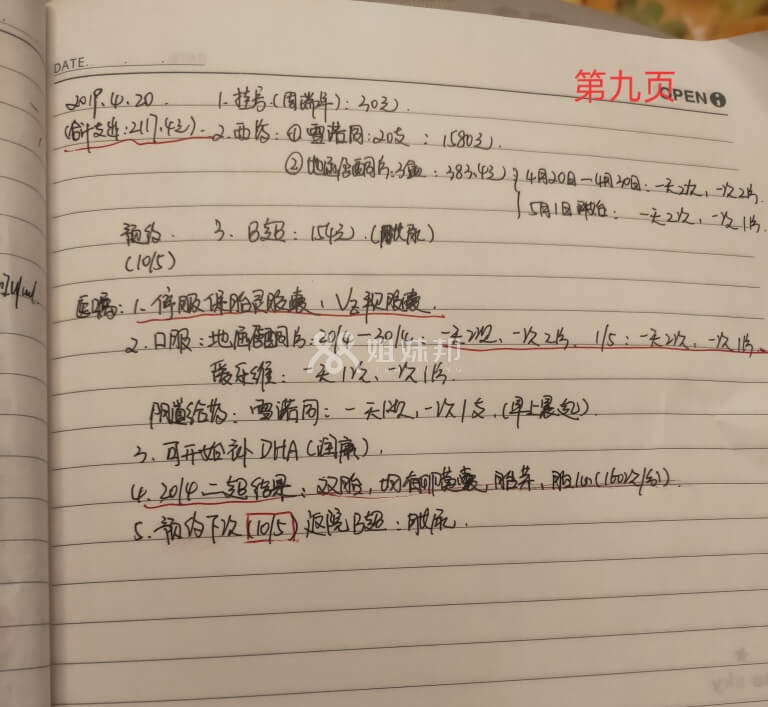 第九页
DATE.
OPEN
2019.4.20 1.挂号(周灿华):30元.
(合计支出:2117.4元). 2.西药:①雪诺同:20支:1580元.
②地屈孕酮片:3盒:383.4元 4月20日—4月30日:一天2次、一次2片.
5月1日开始:一天2次、一次1片.
预约 3. B超:154元.(胀尿)
(10/5)
医嘱:1.停服保胎灵胶囊、VE软胶囊.
2.口服:地屈孕酮片:20/4—20/4:一天2次、一次2片. 1/5:一天2次、一次1片.
爱乐维:一天1次、一次1片.
阴道给药:雪诺同:一天1次、一次1支.(早上晨起).
3.可开始补DHA(润康).
4. 20/4 B超结果:双胎,均有卵黄囊,胎芽,胎心(160次/分).
5.预约下次(10/5)返院B超:胀尿.
姐妹邦